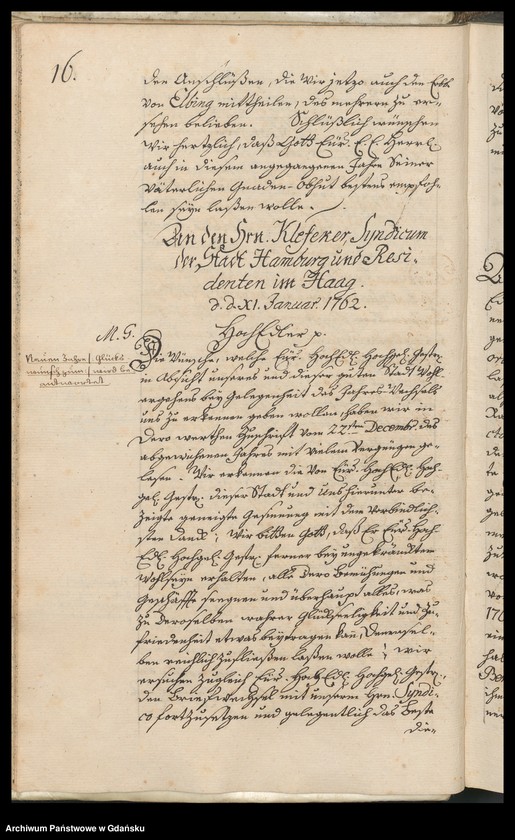 16.
den Anschlüßen, die Wir jetzo auch den Ebb.
von Elbing mittheilen, des mehrern zu er-
sehen belieben. Schlüßlich wünschen
Wir hertzlich, daß Gott Eür. E. E. Herrl.
auch in diesem angegangenen Jahre Seiner
Väterlichen Gnaden-Obhut bestens empfoh-
len seyn laßen wolle.
An den Hrn. Klefeker, Syndicum
der Stadt Hamburg und Resi-
denten im Haag.
d. d. XI. Januar. 1762.
M. G.
HochEdler p.
Neuen Jahrs Glücks
wünschung wird be-
antwortet
Die Wünsche, welche Eür. HochEdl. Hochgel. Gestr.
in Absicht unseres und dieser guten Stadt Wohl-
ergehens bey Gelegenheit des Jahres-Wechsels
uns zu erkennen geben wollen, haben wir in
Dero werthen Zuschrift vom 22ten Decembr. des
abgewichenen Jahres mit vielem Vergnügen ge-
lesen. Wir erkennen die von Eür. HochEdl. Hoch-
gel. Gestr. dieser Stadt und uns hierunter be-
zeigte geneigte Gesinnung mit dem verbindlich-
sten Danck; Wir bitten Gott, daß Er Eür. Hoch-
Edl. Hochgel. Gestr. ferner bey ungekränktem
Wohlseyn erhalten, alle Dero Bemühungen und
Geschäffte seegnen und überhaupt alles, was
zu Deroselben wahrer Glückseeligkeit und Zu-
friedenheit etwas beytragen kan, Denensel-
ben reichlich zufließen laßen wolle; wir
ersuchen zugleich Eür. HochEdl. Hochgel. Gestr.,
den Brief-Wechsel mit unserm Hrn. Syndi-
co fortzusetzen und gelegentlich das Beste
die-
Archiwum Państwowe w Gdańsku